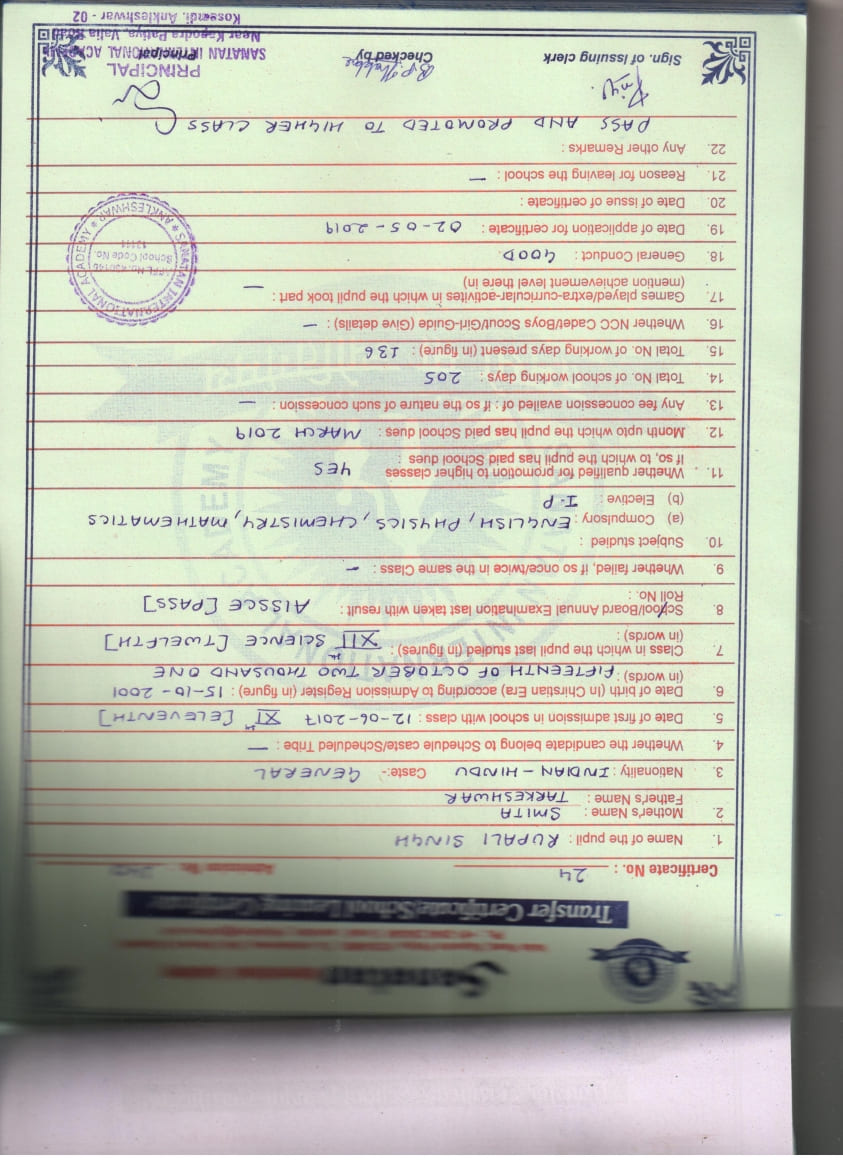 Sanatan
Transfer Certificate/School Leaving Certificate
Certificate No. : 24 Admission No.
1. Name of the pupil : RUPALI SINGH
2. Mother's Name : SMITA
Father's Name : TARKESHWAR
3. Nationality : INDIAN - HINDU Caste:- GENERAL
4. Whether the candidate belong to Schedule caste/Scheduled Tribe : —
5. Date of first admission in school with class : 12-06-2017 XI th [ELEVENTH]
6. Date of birth (In Chirstian Era) according to Admission Register (in figure) : 15-10-2001
(in words) : FIFTEENTH OF OCTOBER TWO THOUSAND ONE
7. Class in which the pupil last studied (in figures) : XII th SCIENCE [TWELFTH]
(in words) :
8. School/Board Annual Examination last taken with result : AISSCE [PASS]
Roll No. :
9. Whether failed, if so once/twice in the same Class : -
10. Subject studied :
(a) Compulsory : ENGLISH, PHYSICS, CHEMISTRY, MATHEMATICS
(b) Elective : I.P
11. Whether qualified for promotion to higher classes YES
If so, to which the pupil has paid School dues :
12. Month upto which the pupil has paid School dues : MARCH 2019
13. Any fee concession availed of : if so the nature of such concession : —
14. Total No. of school working days : 205
15. Total No. of working days present (in figure) : 136
16. Whether NCC Cadet/Boys Scout/Girl-Guide (Give details) : —
17. Games played/extra-curricular-activites in which the pupil took part :
(mention achievement level there in) —
18. General Conduct : GOOD
19. Date of application for certificate : 02-05-2019
20. Date of issue of certificate :
21. Reason for leaving the school : —
22. Any other Remarks :
PASS AND PROMOTED TO HIGHER CLASS
SANATAN INTERNATIONAL ACADEMY
ANKLESHWAR
School Code No.
13111
Sign. of Issuing clerk Checked by Principal
PRINCIPAL
SANATAN INTERNATIONAL ACADEMY
Near Kapodra Patiya, Valia Road
Kosamdi. Ankleshwar - 02